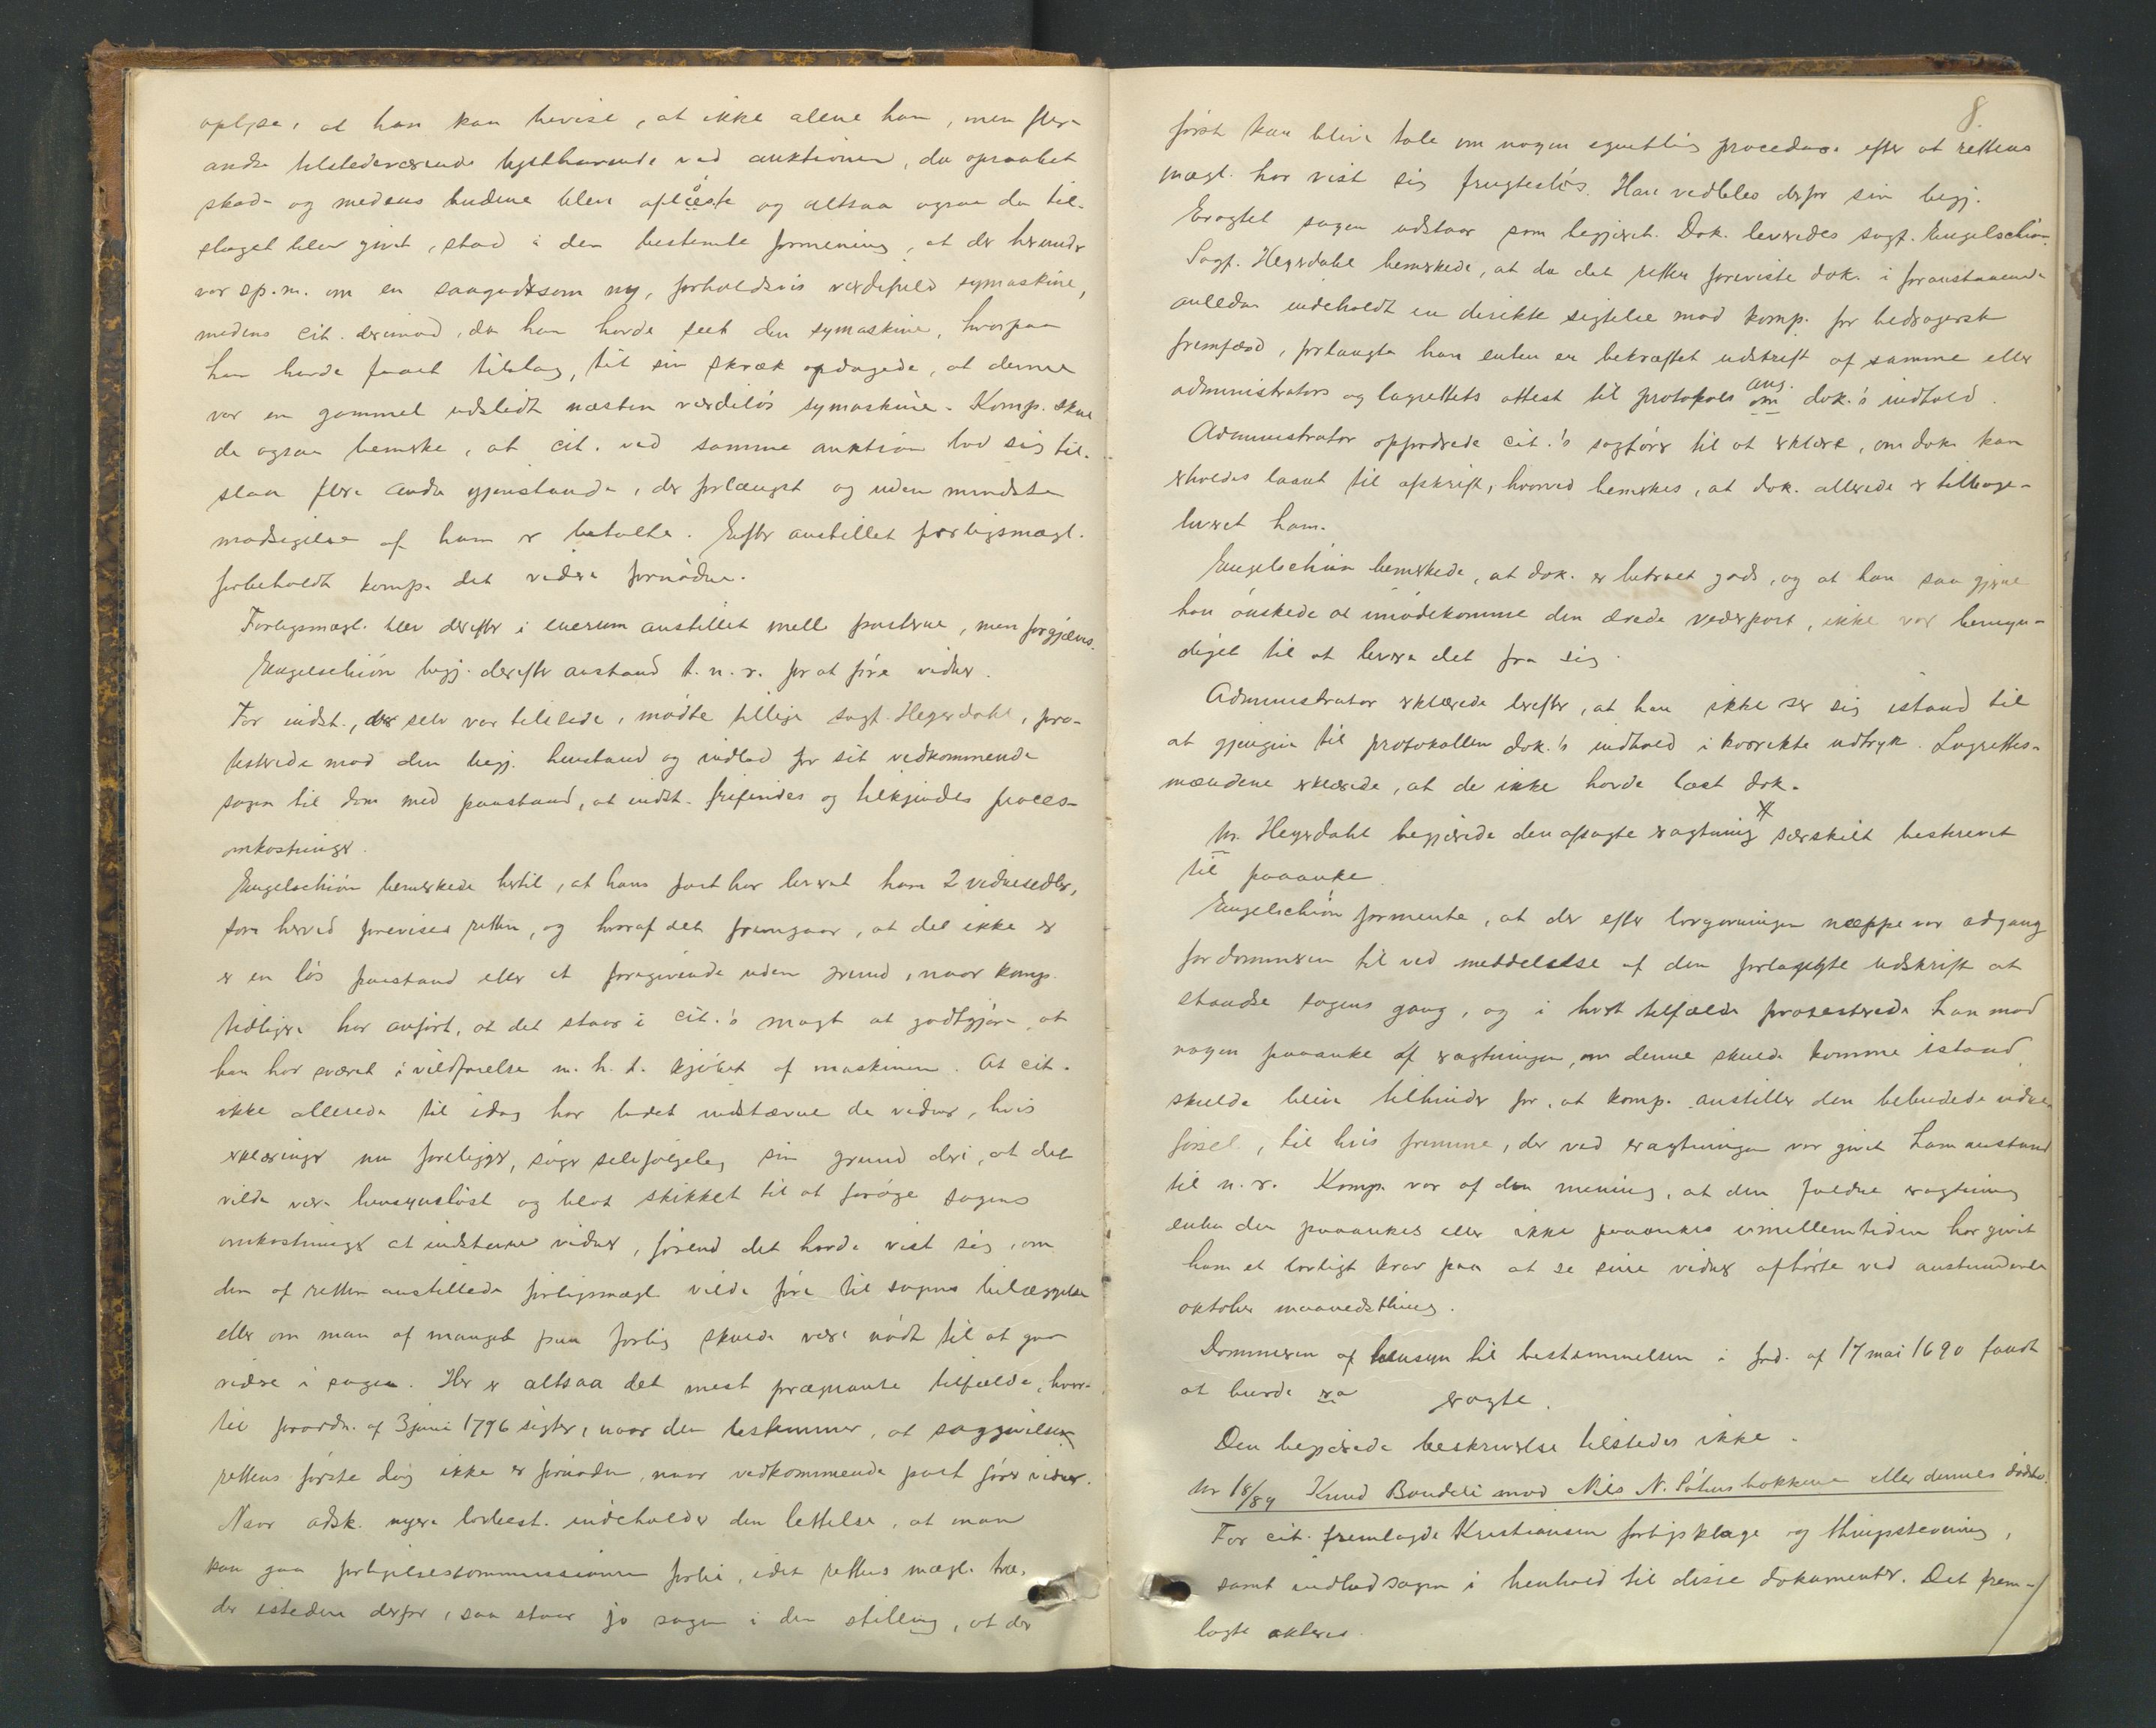 oplyse, at han kan bevise, at ikke alene han, men flere
andre tilstedeværende lysthavende ved auktionen, da opraabet
skede og medens budene blev oplæste og altsaa ogsaa da til-
slaget blev givet, stod i den bestemte formening, at der herunder
var sp.m. om en saagodtsom ny, forholdsvis værdifuld symaskine,
medens cit. derimod, da han havde seet den symaskine, hvorpaa
han havde faaet tilslag, til sin skræk opdagede, at denne
var en gammel udslidt næsten værdiløs symaskine. Komp. skul
de ogsaa bemerke, at cit. ved samme auktion lod sig til-
slaa flere andre gjenstande, der forlængst og uden mindste
modsigelse af ham er betalte. Efter anstillet forligsmægl.
forbeholdt komp. det videre fornødne.
Forligsmægl. blev derefter i enerum anstillet mell. parterne, men forgjæves.
Engelschiøn begj. derefter anstand t. n. r. for at føre vidner.
For indst., der selv var tilstede, mødte tillige sagf. Heyerdahl, pro-
testerede mod den begj. henstand og indlod for sit vedkommende
sagen til dom med paastand, at indst. frifindes og tilkjendes proces-
omkostninger.
Engelschiøn bemerkede hertil, at hans part har leveret ham 2 vidnesedler,
som herved forevises retten, og hvoraf det fremgaar, at det ikke er
er en løs paastand eller et foregivende uden grund, naar komp.
tidligere har anført, at det staar i cit.'s magt at godtgjøre, at
han har været i vildfarelse m. h. t. kjøbet af maskinen. At cit.
ikke allerede til idag har ladet indstævne de vidner, hvis
erklæringer nu foreligger, søger selvfølgelig sin grund deri, at det
vilde være hensynsløst og blot skikket til at forøge sagens
omkostninger at indstevne vidner, førend det havde vist sig, om
den af retten anstillede forligsmægl. vilde føre til sagens bilæggelse
eller om man af mangel paa forlig skulde være nødt til at gaa
videre i sagen. Her er altsaa det mest prægnante tilfælde, hvor-
til forordn. af 3 juni 1796 sigter, naar den bestemmer, at saggivelsen
rettens første dag ikke er fornøden, naar vedkommende part fører vidner.
Naar adsk. nyere lovbest. indeholder den lettelse, at man
kan gaa forligelseskommissionen forbi, idet rettens mægl. træ-
der istedenfor derfor, saa staar jo sagen i den stilling, at der
8.
først kan blive tale om nogen egentlig procedure efter at rettens
mægl. har vist sig frugtesløs. Han vedblev derfor sin begj.
Eragtet sagen udstaar som begjæret. Dok. leveredes sagf. Engelschiøn.
Sagf. Heyerdahl bemerkede, at da det retten foreviste dok. i foranstaaende
anledn. indeholdt en direkte sigtelse mod komp. for bedragersk
fremfærd, forlangte han enten en bekræftet udskrift af samme eller
administrators og lagrettets attest til protokols om ang. dok.'s indhold.
Administrator opfordrede cit.'s sagfører til at erklære, om dok. kan
erholdes laant til afskrift, hvorved bemerkes, at dok. allerede er tilbage-
leveret ham.
Engelschiøn bemerkede, at dok. er betroet gods, og at han saa gjerne
han ønskede at imødekomme den ærede vederpart, ikke var bemyn-
diget til at levere det fra sig.
Administrator erklærede derefter, at han ikke ser sig istand til
at gjengive til protokollen dok.'s indhold i korrekte udtryk. Lagrettes-
mændene erklærede, at de ikke havde læst dok.
hr. Heyerdahl begjærede den afsagte eragtning særskilt beskrevet
til paaanke.
Engelschiøn formente, at der efter lovgivningen næppe var adgang
for dommeren til ved meddelelse af den forlangte udskrift at
standse sagens gang, og i hvert tilfælde protesterede han mod
nogen paaanke af eragtningen, om denne skulde komme istand,
skulde blive tilhinder for, at komp. anstiller den bebudede vidne-
førsel, til hvis fremme, der ved eragtningen var givet ham anstand
til n. r. Komp. var af den mening, at den faldne eragtning
enten den paaankes eller ikke paaankes imellemtiden har givet
ham et lovligt krav paa at se sine vidner afhørte ved anstundende
oktober maanedsthing.
Dommeren af hensyn til bestemmelsen i frd. af 17 mai 1690 fandt
at burde era
eragte.
Den begjærede beskrivelse tilstedes ikke.
Nr 18/89 Knud Bondeli mod Nils N. Pøtersbakken eller dennes dødsbo.
For cit. fremlagde Kristiansen forligsklage og thingstevning,
samt indlod sagen i henhold til disse dokumenter. Det frem-
lagte akteres.